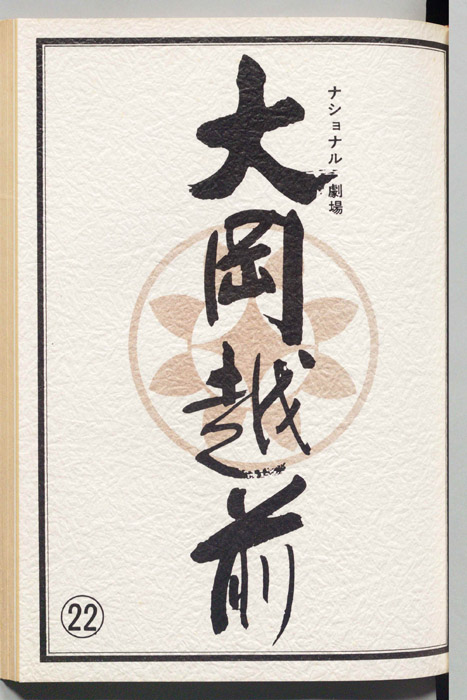 ナショナル劇場
大岡越前
22